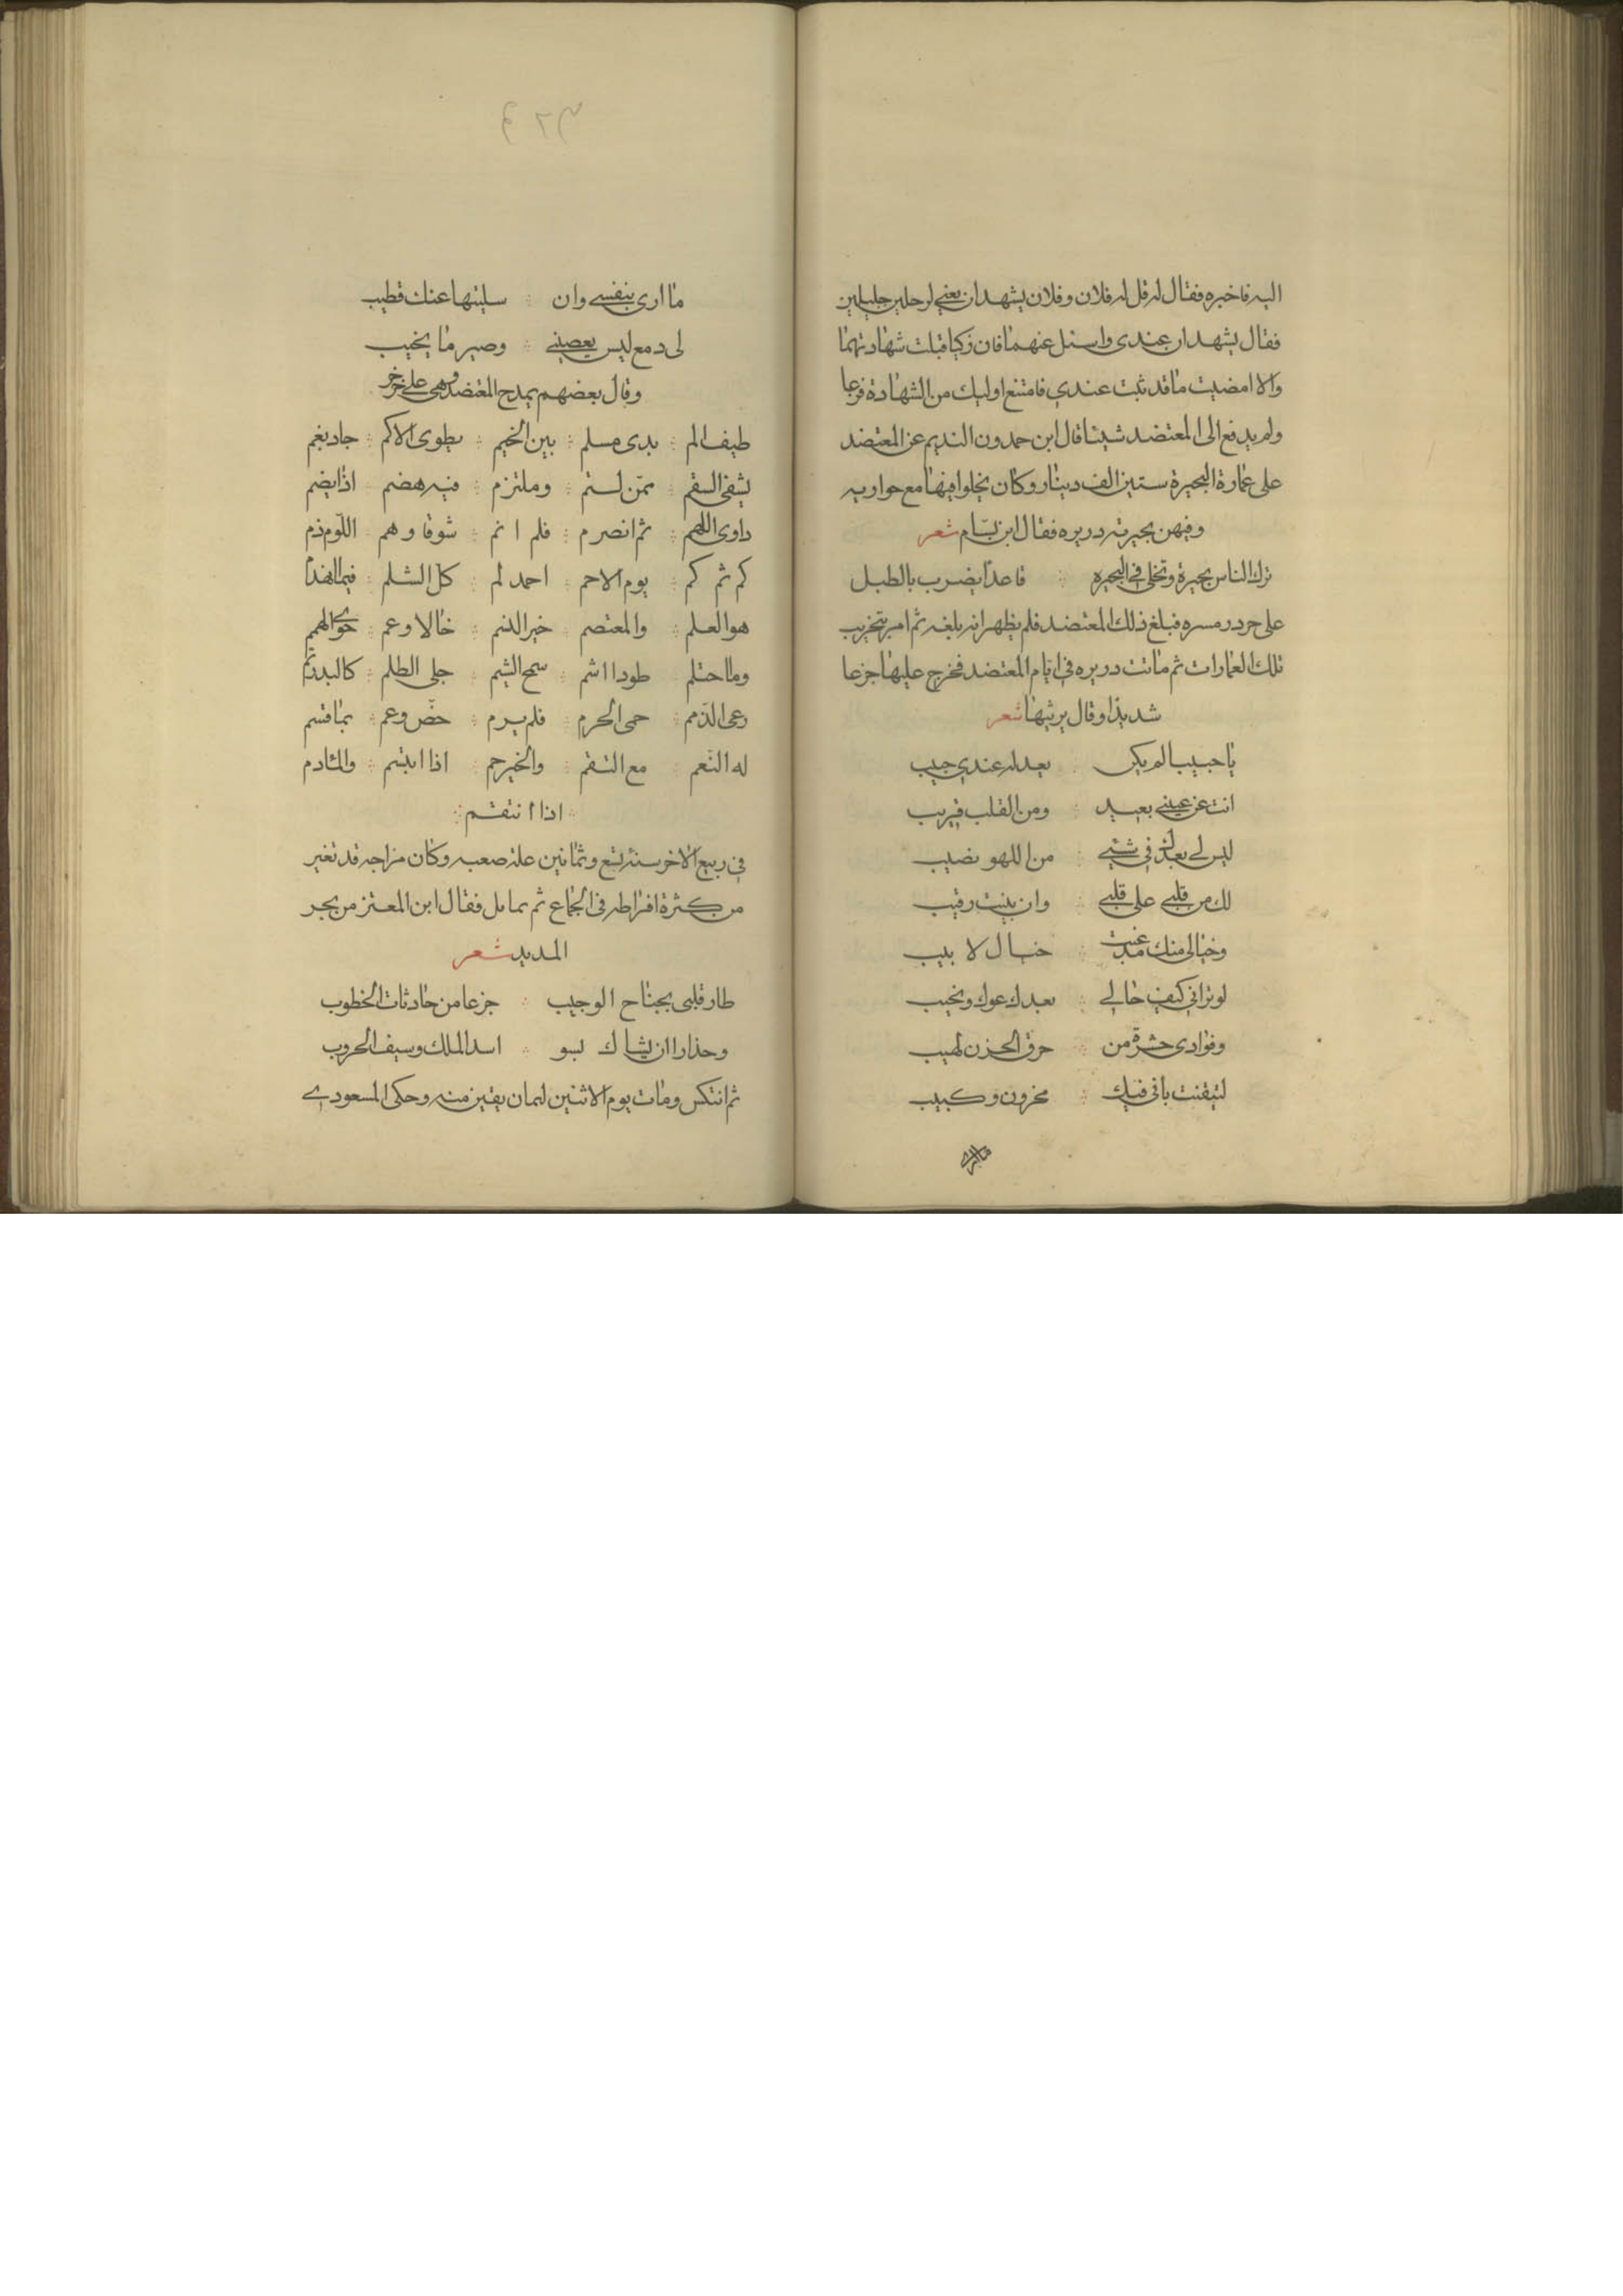 اليه فاخبره فقال له قل له فلان وفلان يشهدان يعني لرجلين جليلين
فقال يشهدان عندى واسئل عنهما فان زكيا قبلت شهادتهما
والا امضيت ما قد ثبت عندي فامتنع اوليك من الشهادة فزعا
ولم يدفع الى المعتضد شيئا قال ابن حمدون النديم عن المعتضد
على عمارة البحيرة ستين الف دينار وكان يخلوا فيها مع جواريه
وفيهن بحيرته دريره فقال ابن بسّام شعر
ترك الناس بحيرة وتخلى في البحيره ∴ قاعدًا يضرب بالطبل
على حر دريره فبلغ ذلك المعتضد فلم يظهر انه بلغه ثم امر بتخريب
تلك العمارات ثم ماتت دريره في ايام المعتضد فخرج عليها جزعا
شديدا وقال يرثيها شعر
يا حبيبا لم يكن ∴ يعدله عندي حبيب
انت عن عيني بعيد ∴ ومن القلب قريب
ليس لي بعدك في شئي ∴ من اللهو نصيب
لك من قلبي على قلبي ∴ وان بنت رقيب
وخيالى منك مذ غبت ∴ خيال لا يغيب
لو تراني كيف حالي ∴ بعدك عول ونحيب
وفوادى حشوه من ∴ حرق الحزن لهيب
لتيقنت بانى فيك ∴ محزون وكييب
ما ارى
ما ارى بنفسي وان ∴ سليتها عنك تطيب
لى دمع ليس يعصيني ∴ وصبر ما يخيب
وقال بعضهم يمدح المعتضد وهى على جزء جزء
طيف الم ∴ بدى سلم ∴ بين الخيم ∴ يطوى الاكم ∴ جاد بغم
يشفى السقم ∴ ممّن لستم ∴ وملتزم ∴ فيه هضم ∴ اذا يضم
داوى اللهم ∴ ثم انصرم ∴ فلم انم ∴ شوقا وهم ∴ اللّوم ذم
كم ثم كم ∴ يوم الاحم ∴ احمد لم ∴ كل الشلم ∴ فيما انهدم
هو العلم ∴ والمعتصم ∴ خير النسم ∴ خالا وعم ∴ حوى الهمم
وما احتلم ∴ طودا اشم ∴ سمح الشيم ∴ جلى الظلم ∴ كالبدر تم
رعى الذمم ∴ حمى الحرم ∴ فلم يرم ∴ خصّ وعم ∴ بما قسم
له النّعم ∴ مع النقم ∴ والخير جم ∴ اذا ابتسم ∴ والماء دم
∴ اذا انتقم ∴
في ربيع الاخر سنة تسع وثمانين علة صعبه وكان مزاجه قد تغير
من كثرة افراطه في الجماع ثم تماثل فقال ابن المعتز من بحر
المديد شعر
طار قلبى بجناح الوجيب ∴ جزعا من حادثات الخطوب
وحذارا ان يشاك بسو ∴ اسد الملك وسيف الحروب
ثم انتكس ومات يوم الاثنين لثمان بقين منه وحكى المسعودي